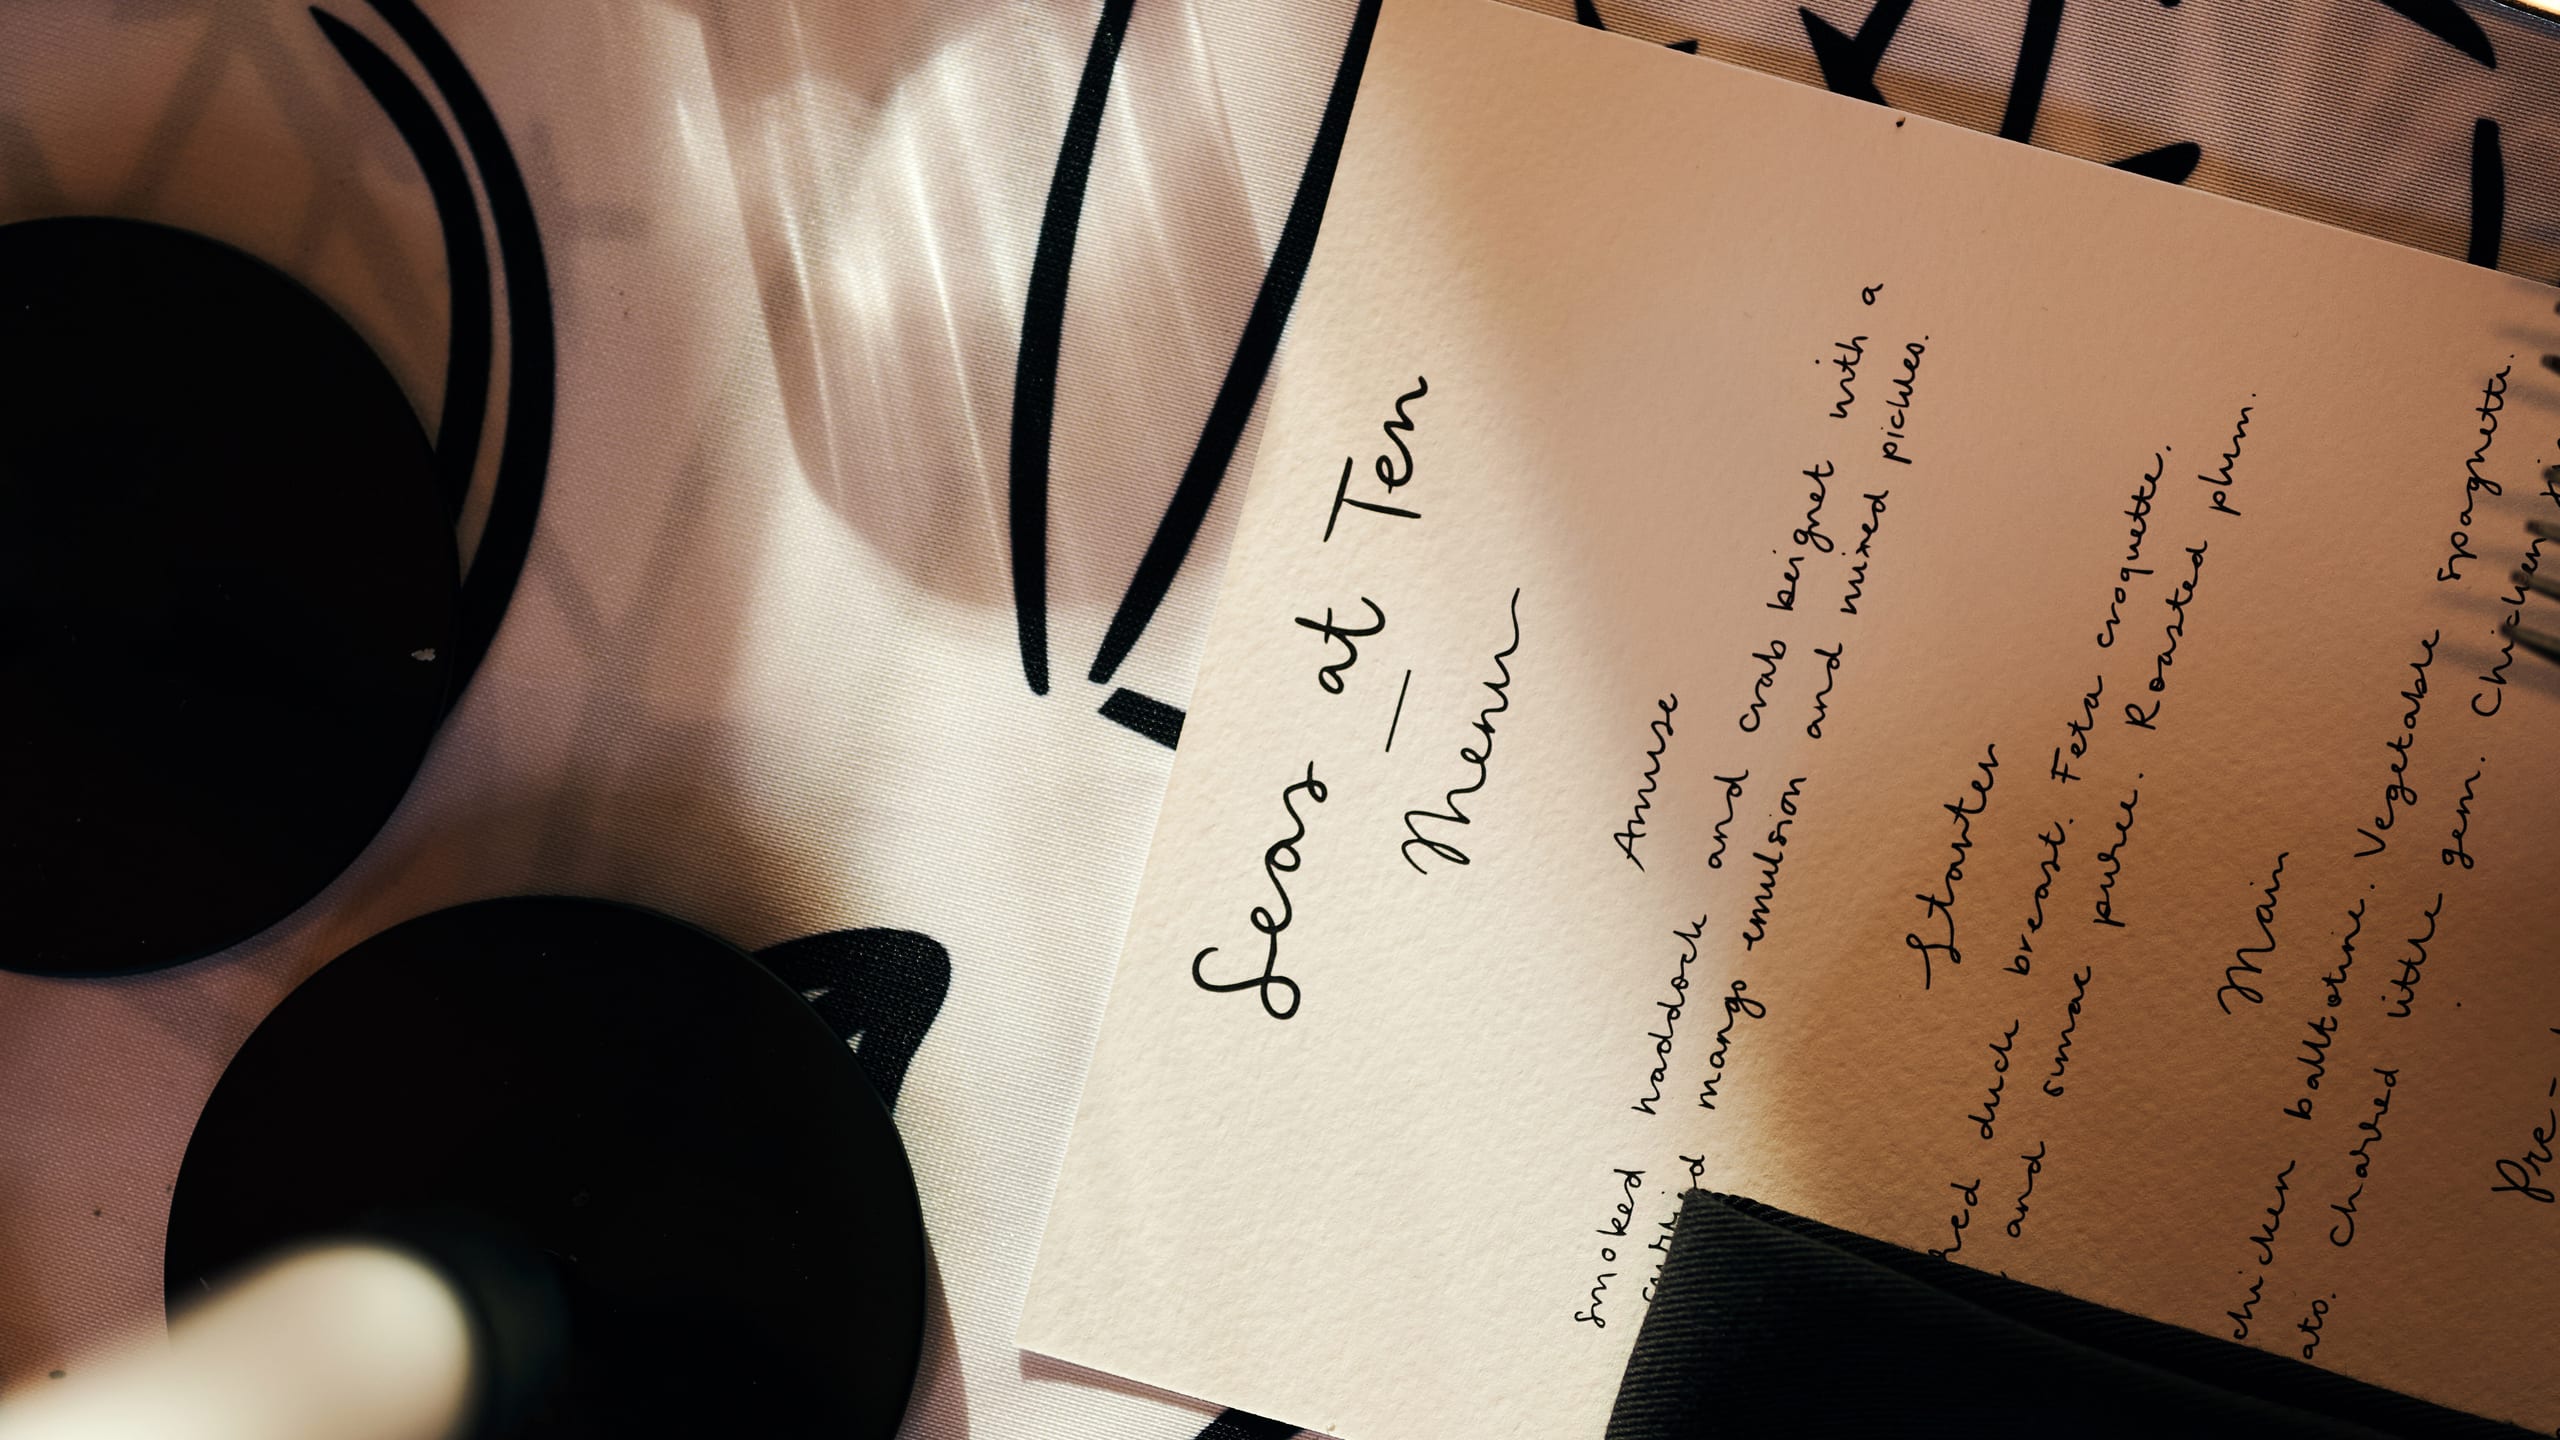 Seas at Ten
—
Menu
Amuse
Smoked haddock and crab beignet with a
mango emulsion and mixed pickles.
Starter
duck breast. Feta croquette.
and sumac puree. Roasted plum.
Main
chicken ballotine. Vegetable spagnetti.
Charred little gem. Chicken
Pre-